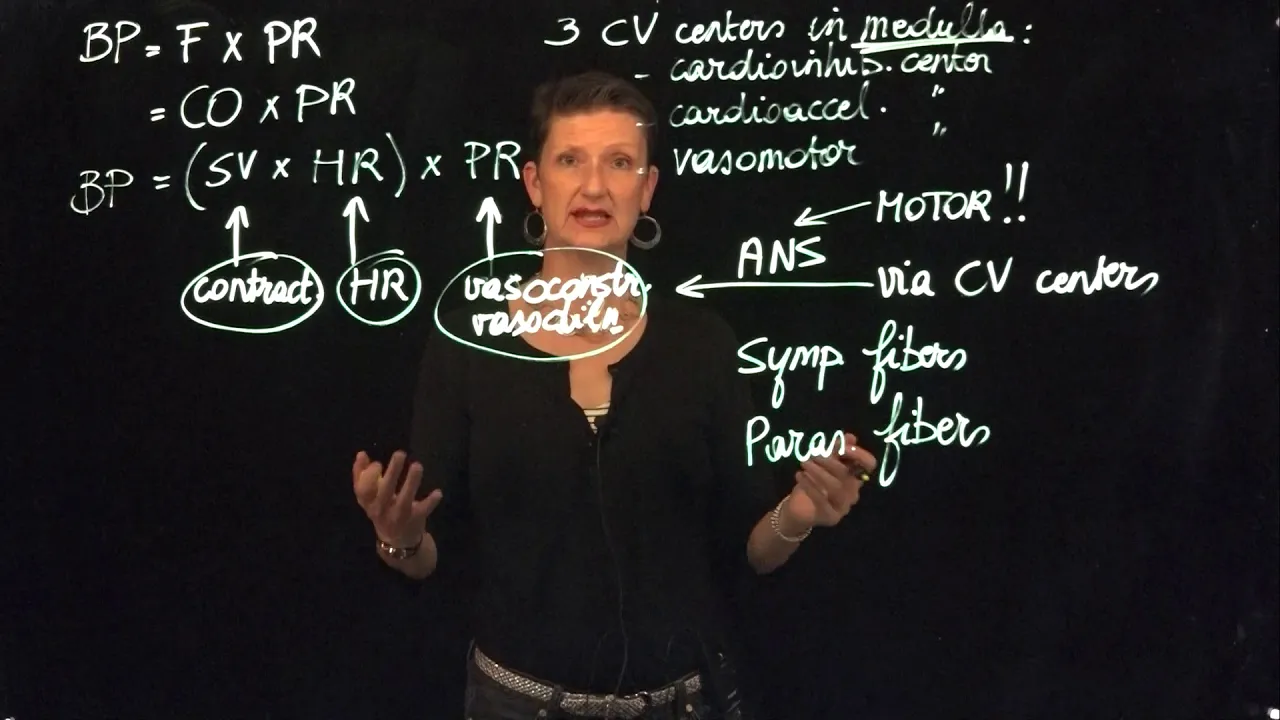 BP = F x PR
= CO x PR
BP = (SV x HR) x PR
contract. HR vasoconstr.
vasodiln
3 CV centers in medulla:
- cardioinhib. center
- cardioaccel. "
- vasomotor "
MOTOR!!
ANS
via CV centers
Symp fibers
Paras. fibers